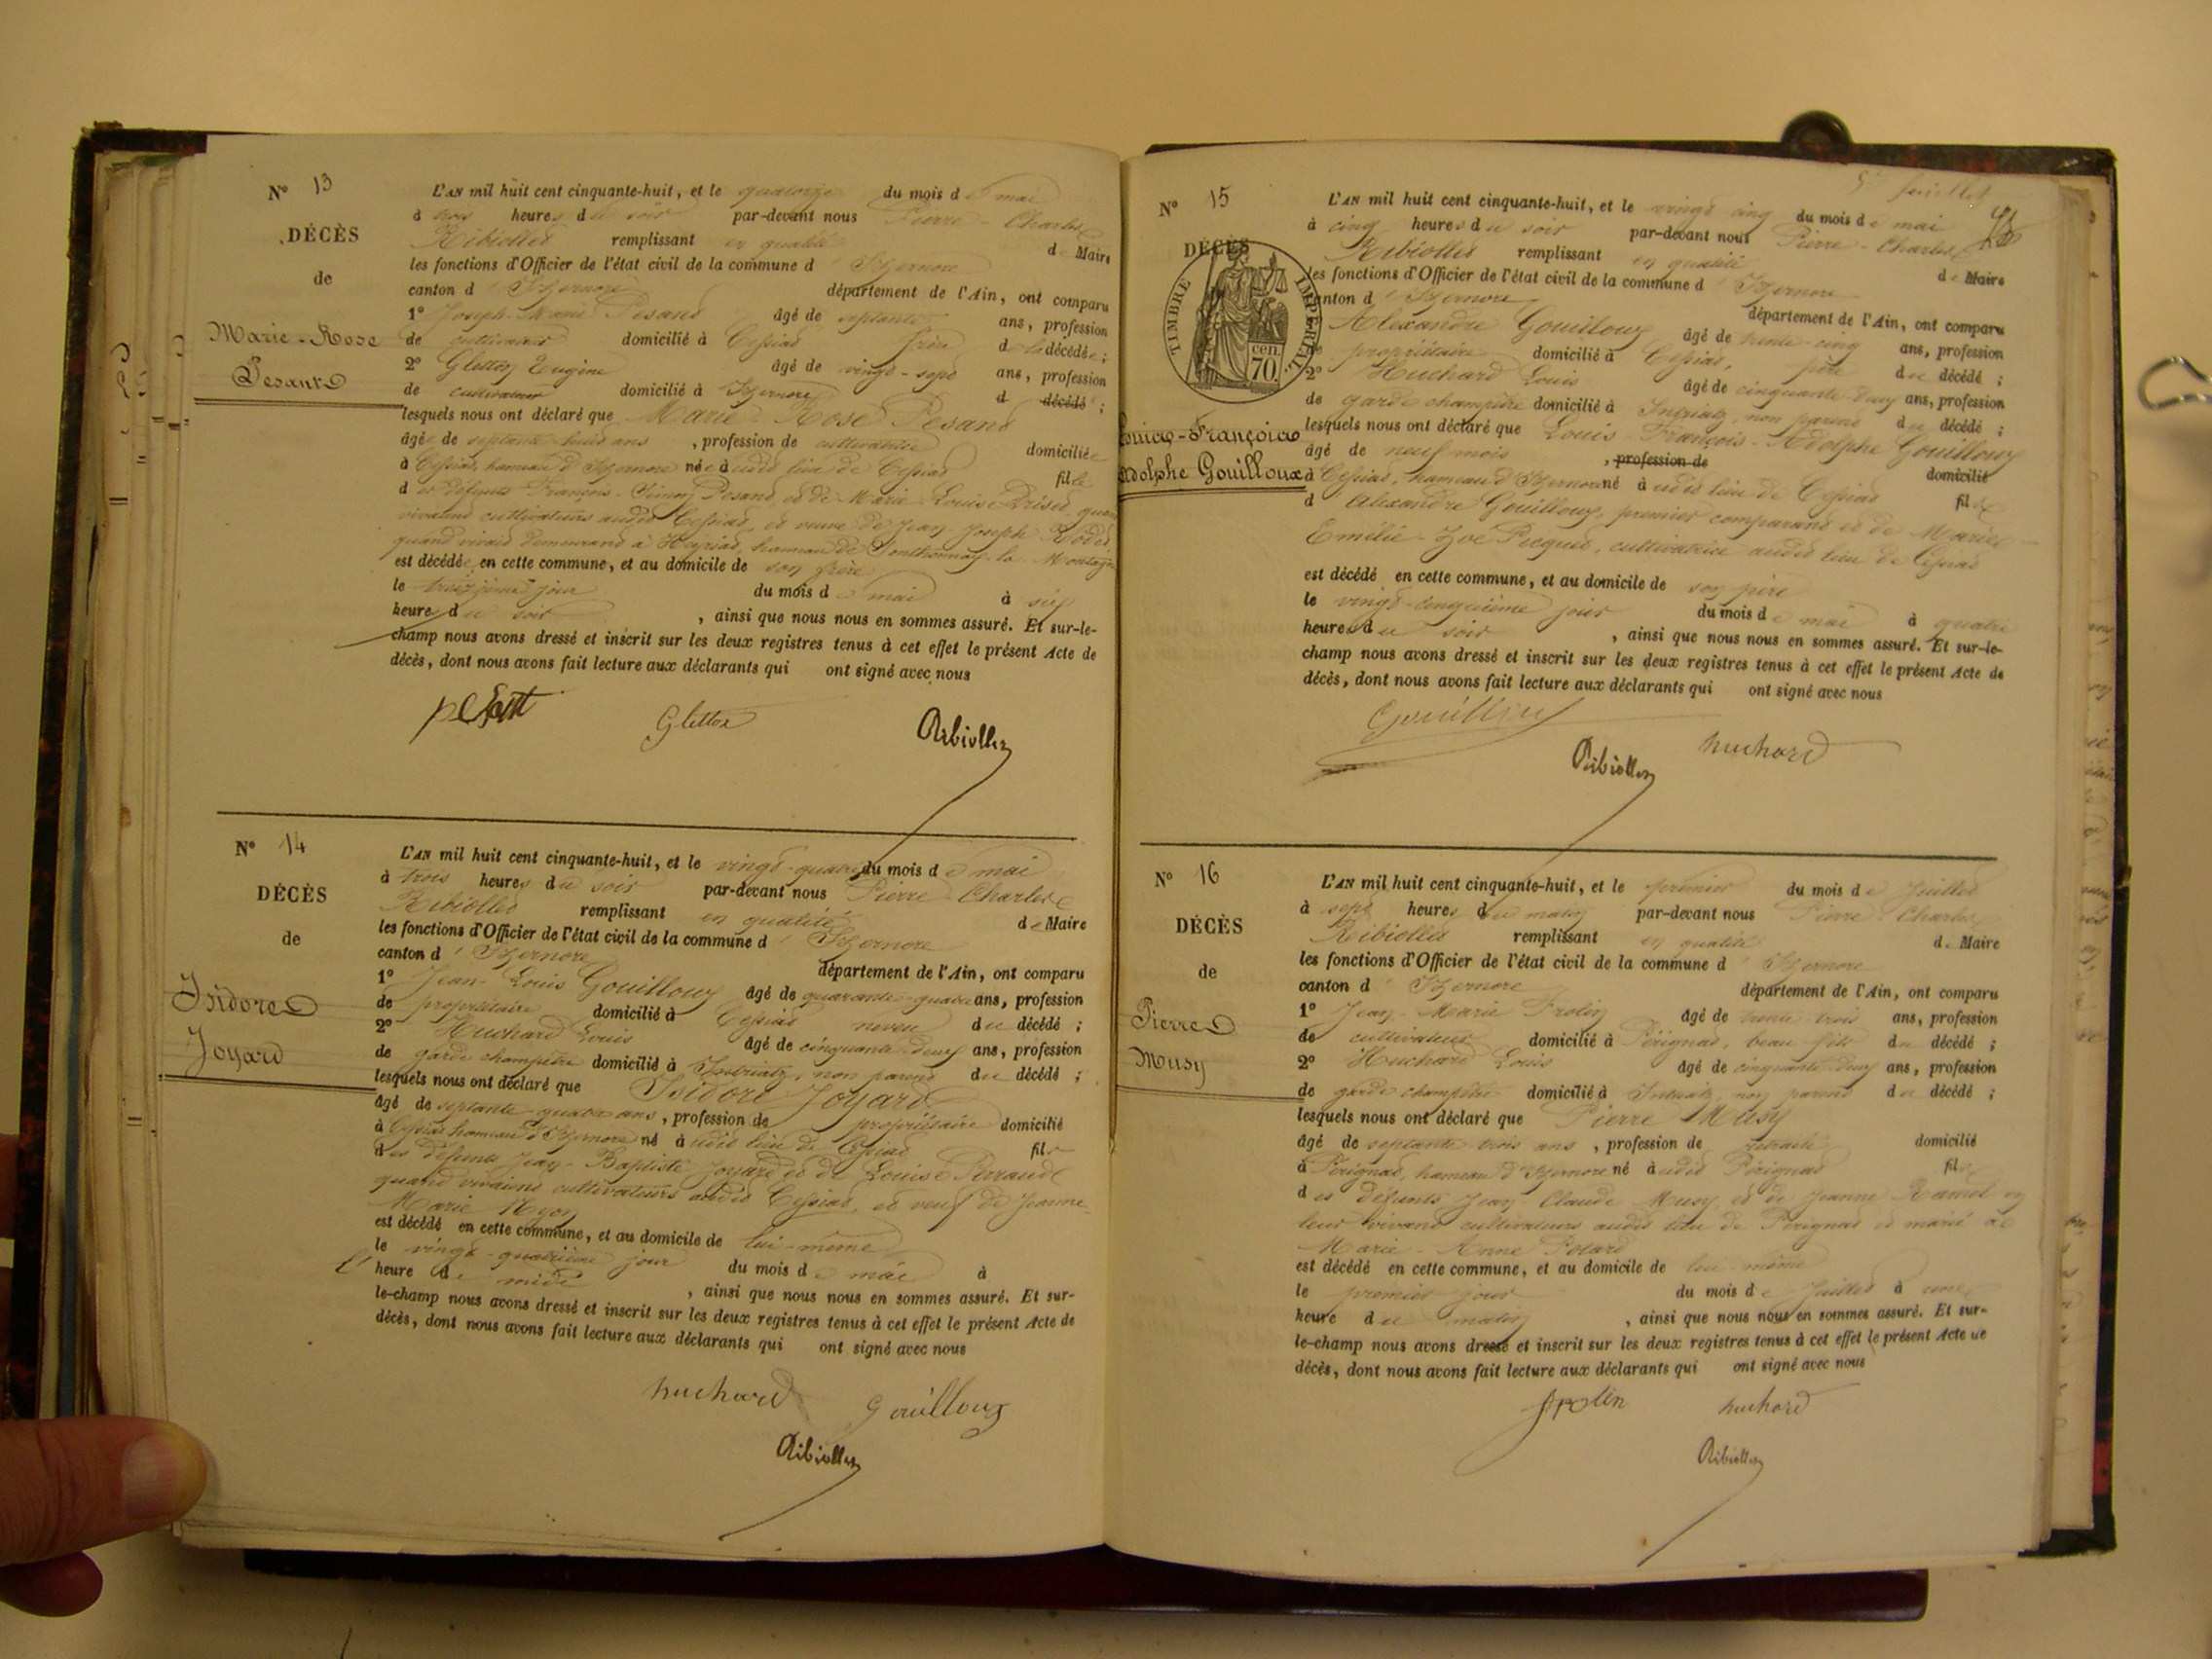 N° 13
DÉCÈS
de
Marie-Rose
Pesant
L'AN mil huit cent cinquante-huit, et le quatorze du mois de mai
à trois heures du soir par-devant nous Pierre-Charles
Ribiollet remplissant en qualité de Maire
les fonctions d'Officier de l'état civil de la commune d'Izernore
canton d'Izernore département de l'Ain, ont comparu
1° Joseph-Marie Pesand âgé de septante ans, profession
de cultivateur domicilié à Cessiat frère de la décédée ;
2° Gletton Eugène âgé de vingt-sept ans, profession
de cultivateur domicilié à Izernore d décédé ;
lesquels nous ont déclaré que Marie-Rose Pesand
âgée de septante huit ans, profession de cultivatrice domiciliée
à Cessiat, hameau d'Izernore née à udit lieu de Cessiat fille
des défunts François-Simon Pesand, et de Marie-Louise quand
vivaient cultivateurs audit Cessiat, et veuve de Jean-Joseph Rodet
quand vivait demeurant à Heyriat, hameau de Sonthonnax-la-Montagne
est décédée en cette commune, et au domicile de son frère
le treizième jour du mois de mai à six
heures du soir, ainsi que nous nous en sommes assuré. Et sur-le-
champ nous avons dressé et inscrit sur les deux registres tenus à cet effet le présent Acte de
décès, dont nous avons fait lecture aux déclarants qui ont signé avec nous
pesant Gletton Ribiollet
N° 14
DÉCÈS
de
Isidore
Joyard
L'AN mil huit cent cinquante-huit, et le vingt-quatre du mois de mai
à trois heures du soir par-devant nous Pierre Charles
Ribiollet remplissant en qualité de Maire
les fonctions d'Officier de l'état civil de la commune d'Izernore
canton d'Izernore département de l'Ain, ont comparu
1° Jean-Louis Gouilloux âgé de quarante-quatre ans, profession
de propriétaire domicilié à Cessiat neveu du décédé ;
2° Huchard Louis âgé de cinquante-deux ans, profession
de garde champêtre domicilié à Intriatz, non parent du décédé ;
lesquels nous ont déclaré que Isidore Joyard
âgé de septante-quatre ans, profession de propriétaire domicilié
à Cessiat hameau d'Izernore né à udit lieu de Cessiat fils
des défunts Jean-Baptiste Joyard et de Louise Perraud
quand vivaient cultivateurs audit Cessiat, et veuf de Jeanne
Marie
est décédé en cette commune, et au domicile de lui-même
le vingt-quatrième jour du mois de mai à
l'heure de midi, ainsi que nous nous en sommes assuré. Et sur-
le-champ nous avons dressé et inscrit sur les deux registres tenus à cet effet le présent Acte de
décès, dont nous avons fait lecture aux déclarants qui ont signé avec nous
huchard Gouilloux
Ribiollet
5e feuillet
N° 15
DÉCÈS
TIMBRE IMPERIAL
70 cen.
Louis-François
Adolphe Gouilloux
L'AN mil huit cent cinquante-huit, et le vingt cinq du mois de mai
à cinq heures du soir par-devant nous Pierre-Charles
Ribiollet remplissant en qualité de Maire
les fonctions d'Officier de l'état civil de la commune d'Izernore
canton d'Izernore département de l'Ain, ont comparu
Alexandre Gouilloux âgé de trente-cinq ans, profession
de propriétaire domicilié à Cessiat, père du décédé ;
2° Huchard Louis âgé de cinquante-deux ans, profession
de garde champêtre domicilié à Intriatz, non parent du décédé ;
lesquels nous ont déclaré que Louis-François-Adolphe Gouilloux
âgé de neuf mois, profession de domicilié
à Cessiat, hameau d'Izernore né à udit lieu de Cessiat fils
d'Alexandre Gouilloux, premier comparant et de Marie
Emélie-Zoé Picquet, cultivatrice audit lieu de Cessiat
est décédé en cette commune, et au domicile de son père
le vingt-cinquième jour du mois de mai à quatre
heures du soir, ainsi que nous nous en sommes assuré. Et sur-le-
champ nous avons dressé et inscrit sur les deux registres tenus à cet effet le présent Acte de
décès, dont nous avons fait lecture aux déclarants qui ont signé avec nous
Gouilloux
Ribiollet huchard
N° 16
DÉCÈS
de
Pierre
Musy
L'AN mil huit cent cinquante-huit, et le premier du mois de Juillet
à sept heures du matin par-devant nous Pierre-Charles
Ribiollet remplissant en qualité de Maire
les fonctions d'Officier de l'état civil de la commune d'Izernore
canton d'Izernore département de l'Ain, ont comparu
1° Jean-Marie Frolin âgé de trente trois ans, profession
de cultivateur domicilié à Pérignat, beau fils du décédé ;
2° Huchard Louis âgé de cinquante-deux ans, profession
de garde champêtre domicilié à Intriatz, non parent du décédé ;
lesquels nous ont déclaré que Pierre Musy
âgé de septante trois ans, profession de retraité domicilié
à Pérignat, hameau d'Izernore né à udit Pérignat fils
des défunts Jean Claude Musy et de Jeanne Ramel en
leur vivant cultivateurs audit lieu de Pérignat et marié à
Marie-Anne
est décédé en cette commune, et au domicile de lui-même
le premier jour du mois de Juillet à une
heure du matin, ainsi que nous nous en sommes assuré. Et sur-
le-champ nous avons dressé et inscrit sur les deux registres tenus à cet effet le présent Acte de
décès, dont nous avons fait lecture aux déclarants qui ont signé avec nous
frolin huchard
Ribiollet